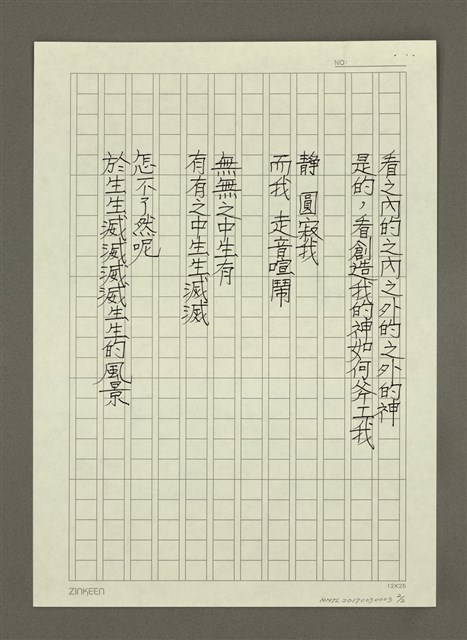 NO:
看之內的之內之外的之外的神
是的，看創造我的神如何斧工我
靜 圓寂我
而我 走音喧鬧
無無之中生有
有有之中生生滅滅
怎不了然呢
於生生滅滅滅滅生生的風景
ZINKEEN
12X25
NMTL 20170030003 2/2